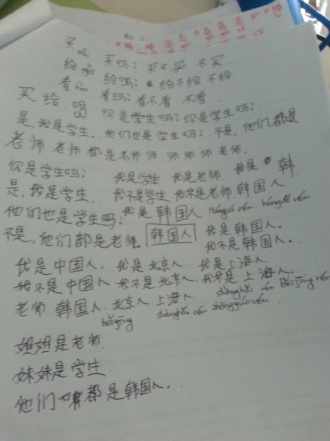 买吗 买吗：买不买 不买.
给吗 给吗：给不给 不给
看吗 看吗：看不看 不看.
买 给 唱 你是学生吗：你是学生吗：
是，我是学生。他们也是学生吗：不是，他们都是
老师 老师 都是老师 师 师 师 老师.
你是学生吗： 我是学生 我是老师 我是 韩
是，我是学生。 我不是学生 我不是老师 韩国人.
他们也是学生吗：我是 韩国人
不是，他们都是老师. 韩国人 我是韩国人.
我不是韩国人.
我是中国人. 我是北京人. 我是上海人.
我不是中国人 我不是北京人. 我不是上海人.
老师 韩国人. 北京人 上海人.
běijīng
姐姐是老师
妹妹是学生
他们 都是韩国人.